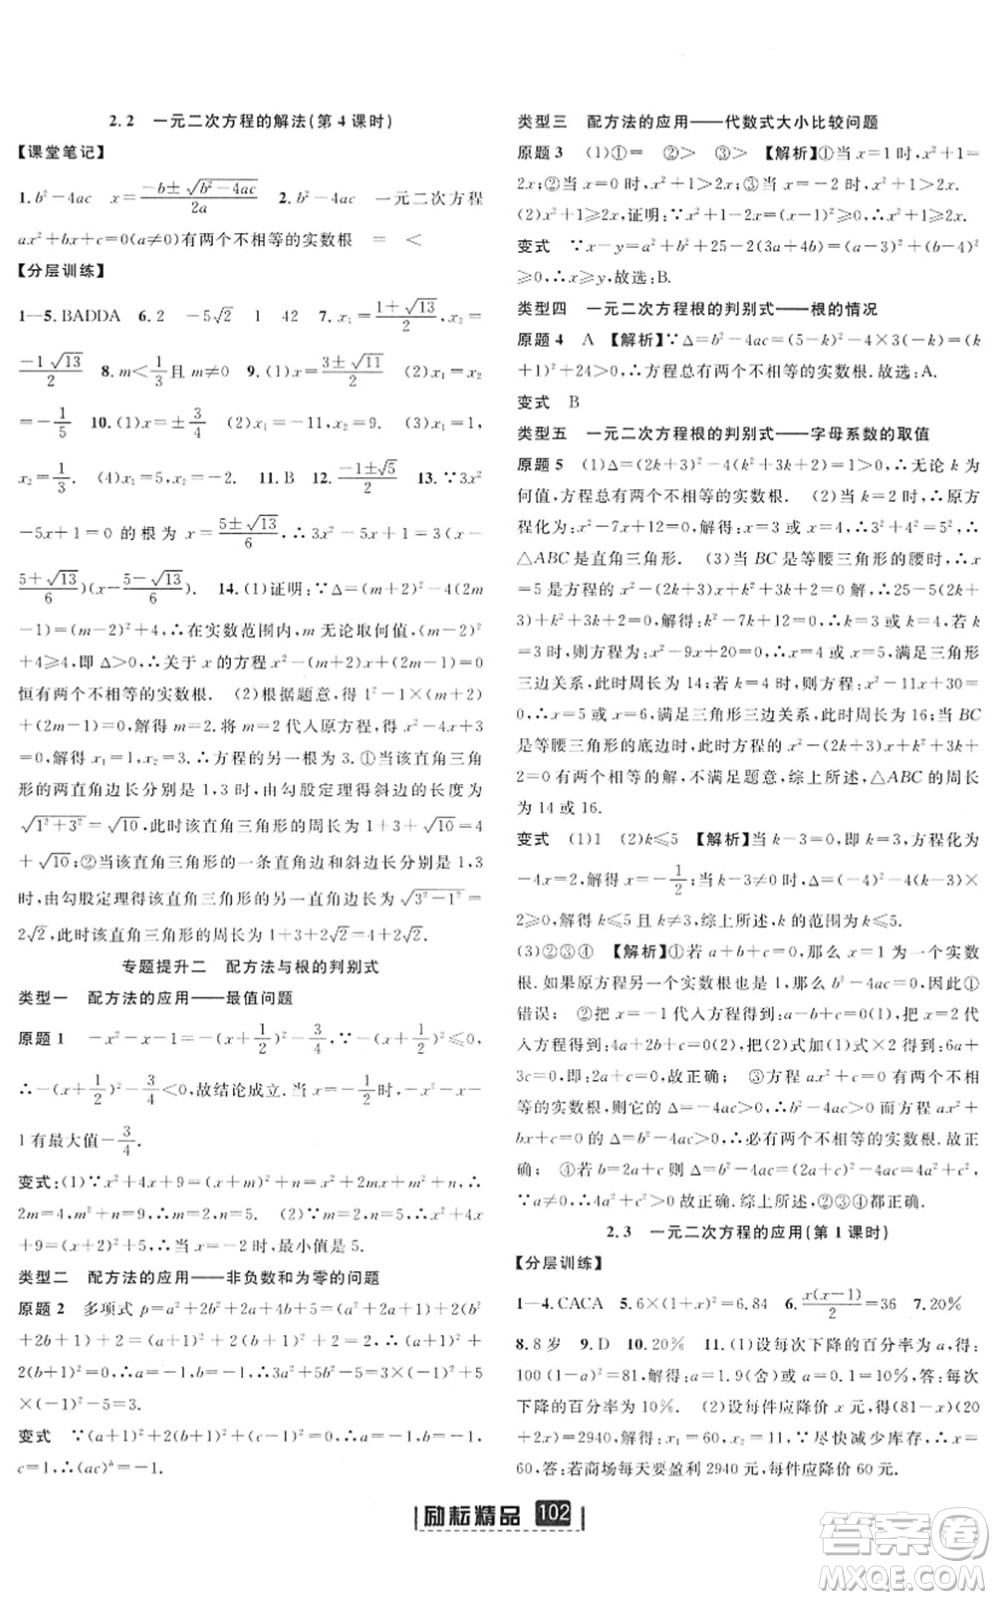 2.2 一元二次方程的解法(第4课时)
【课堂笔记】
1. b²-4ac x=\frac{-b±\sqrt{b²-4ac}}{2a} 2. b²-4ac 一元二次方程
ax²+bx+c=0(a≠0)有两个不相等的实数根 = <
【分层训练】
1—5. BADDA 6. 2 -5√2 1 42 7. x₁=\frac{1+\sqrt{13}}{2}, x₂=
\frac{-1\sqrt{13}}{2} 8. m<\frac{1}{3}且 m≠0 9. (1)x=\frac{3±\sqrt{21}}{2} (2)x₁=x₂
=-\frac{1}{5} 10. (1)x=±\frac{3}{4} (2)x₁=-11,x₂=9. (3)x₁=1,
x₂=\frac{1}{3}. (4)x₁=7,x₂=-2 11. B 12. \frac{-1±\sqrt{5}}{2} 13. ∵3x²
-5x+1=0 的根为 x=\frac{5±\sqrt{13}}{6},∴3x²-5x+1=3(x-
\frac{5+\sqrt{13}}{6})(x-\frac{5-\sqrt{13}}{6}). 14. (1)证明:∵Δ=(m+2)²-4(2m
-1)=(m-2)²+4,∴在实数范围内,m 无论取何值,(m-2)²
+4≥4,即Δ>0,∴关于 x 的方程 x²-(m+2)x+(2m-1)=0
恒有两个不相等的实数根. (2)根据题意,得 1²-1×(m+2)
+(2m-1)=0,解得 m=2.将 m=2 代人原方程,得 x²-4x+3
=0,解得 x₁=1,x₂=3.①当该直角三角形为等腰直角三角
形的两直角边长为 1,3 时,由勾股定理得斜边的长度为
\sqrt{1²+3²}=√10,此时该直角三角形的周长为 1+3+√10=4
+√10;②当该直角三角形的一条直角边和斜边长为 1,3
时,由勾股定理得该直角三角形的另一直角边长为\sqrt{3²-1²}=
2√2,此时该直角三角形的周长为 1+3+2√2=4+2√2.
专题提升二 配方法与根的判别式
类型一 配方法的应用——最值问题
原题 1 -x²-x-1=-(x+\frac{1}{2})²-\frac{3}{4},∵-(x+\frac{1}{2})²≤0,
∴-(x+\frac{1}{2})²-\frac{3}{4}<0,故结论成立.当 x=-\frac{1}{2}时,-x²-x-
1有最大值-\frac{3}{4}.
变式:(1)∵x²+4x+9=(x+m)²+n=x²+2mx+m²+n,∴
2m=4,m²+n=9,∴m=2,n=5. (2)∵m=2,n=5,∴x²+4x
+9=(x+2)²+5,∴当 x=-2 时,最小值是 5.
类型二 配方法的应用——非负数和为零的问题
原题 2 多项式 p=a²+2b²+2a+4b+5=(a²+2a+1)+(2b²
+2b+1)+2=(a+1)²+2(b+1)²+2,∴当(a+1)²+
2(b+1)²=0,∴a=-1,b=-1,∴2a-5b=2×(-1)-5
×(-1)=-2+5=3.
变式 ∵(a+1)²+2(b+2)²+(c-1)²=0,∴a=-1,b=
-2,c=1,∴(ac)ᵇ=-1.
类型三 配方法的应用——代数式大小比较问题
原题 3 (1)①= ②> ③> 【解析】①当 x=1 时,x²+1=
2x.②当 x=0 时,x²+1>2x.③当 x=-2 时,x²+1>2x.
(2)x²+1≥2x,证明:∵x²+1-2x=(x-1)²≥0,∴x²+1≥2x.
变式 ∵x-y=a²+b²+25-2(3a+4b)=(a-3)²+(b-4)²
≥0,∴x≥y,故选:B.
类型四 一元二次方程根的判别式——根的情况
原题 4 A 【解析】∵Δ=b²-4ac=(5-k)²-4×3(-k)=(k
+1)²+24>0,∴方程总有两个不相等的实数根,故选:A.
变式 B
类型五 一元二次方程根的判别式——字母系数的取值
原题 5 (1)Δ=(2k+3)²-4(k²+3k+2)=1>0,∴无论 k 为
何值,方程总有两个不相等的实数根. (2)当 k=2 时,∴原方
程化为:x²-7x+12=0,解得:x=3 或 x=4,∴3²+4²=5²,∴
△ABC 是直角三角形. (3)当 BC 是等腰三角形的腰时,∴x
=5 是方程的 x²-(2k+3)x+k²+3k+2=0 解,∴25-5(2k
+3)+k²+3k+2=0,解得:k=3 或 k=4,若 k
=3 时,∴x²-9x+20=0,∴x=4 或 x=5,满足三角形
三边关系,此时周长为 14;若 k=4 时,∴x²-11x+30=0,∴x
=5 或 x=6,满足三角形三边关系,此时周长为 16;当 BC
是等腰三角形的底边时,此时方程的 x²-(2k+3)x+k²+3k+
2=0 有两个相等的解,不满足题意,综上所述,△ABC 的周长
为 14 或 16.
变式 (1)1 (2)k≤5 【解析】当 k-3=0,即 k=3,方程化为
-4x=2,解得 x=-\frac{1}{2};当 k-3≠0 时,Δ=(-4)²-4(k-3)×
2≥0,解得 k≤5 且 k≠3,综上所述,k 的范围为 k≤5.
(3)②③④ 【解析】①若 a+b+c=0,那么 x=1 为一个实数
根.但是可能存在另一个实数根不为 1,即 b²-4ac>0.因此①
错误; ②把 x=-1 代人方程得到:a-b+c=0,把 x=2 代
人方程得到:4a+2b+c=0,把(2)式加(1)式×2 得到:6a+
3c=0,即:2a+c=0,故正确; ③方程 ax²+c=0 有两个不相
等的实数根,则它的Δ=-4ac>0,∴b²-4ac>0 而方程 ax²+
bx+c=0 的Δ=b²-4ac>0,∴必有两个不相等的实数根.故正
确; ④若 b=2a+c 则Δ=b²-4ac=(2a+c)²-4ac=4a²+c²,
∵a≠0,∴4a²+c²>0 故正确,综上所述,②③④都正确.
2.3 一元二次方程的应用(第1课时)
【分层训练】
1—4. CACA 5. 6×(1+x)²=6.84 6. \frac{x(x-1)}{2}=36 7. 20%
8. 8 岁 9. D 10. 20% 11. (1)设每次下降的百分率为 a,得:
100(1-a)²=81,解得:a=1.9(舍)或 a=0.1=10%,答:每次
下降的百分率为 10%. (2)设每件应降价 x 元,得(81-x)(20
+2x)=2940,解得:x₁=60,x₂=11,∵尽快减少库存,∴x=
60,答:若商场每天要盈利 2940 元,每件应降价 60 元.
励耘精品 102
答案圈
MXQE.COM